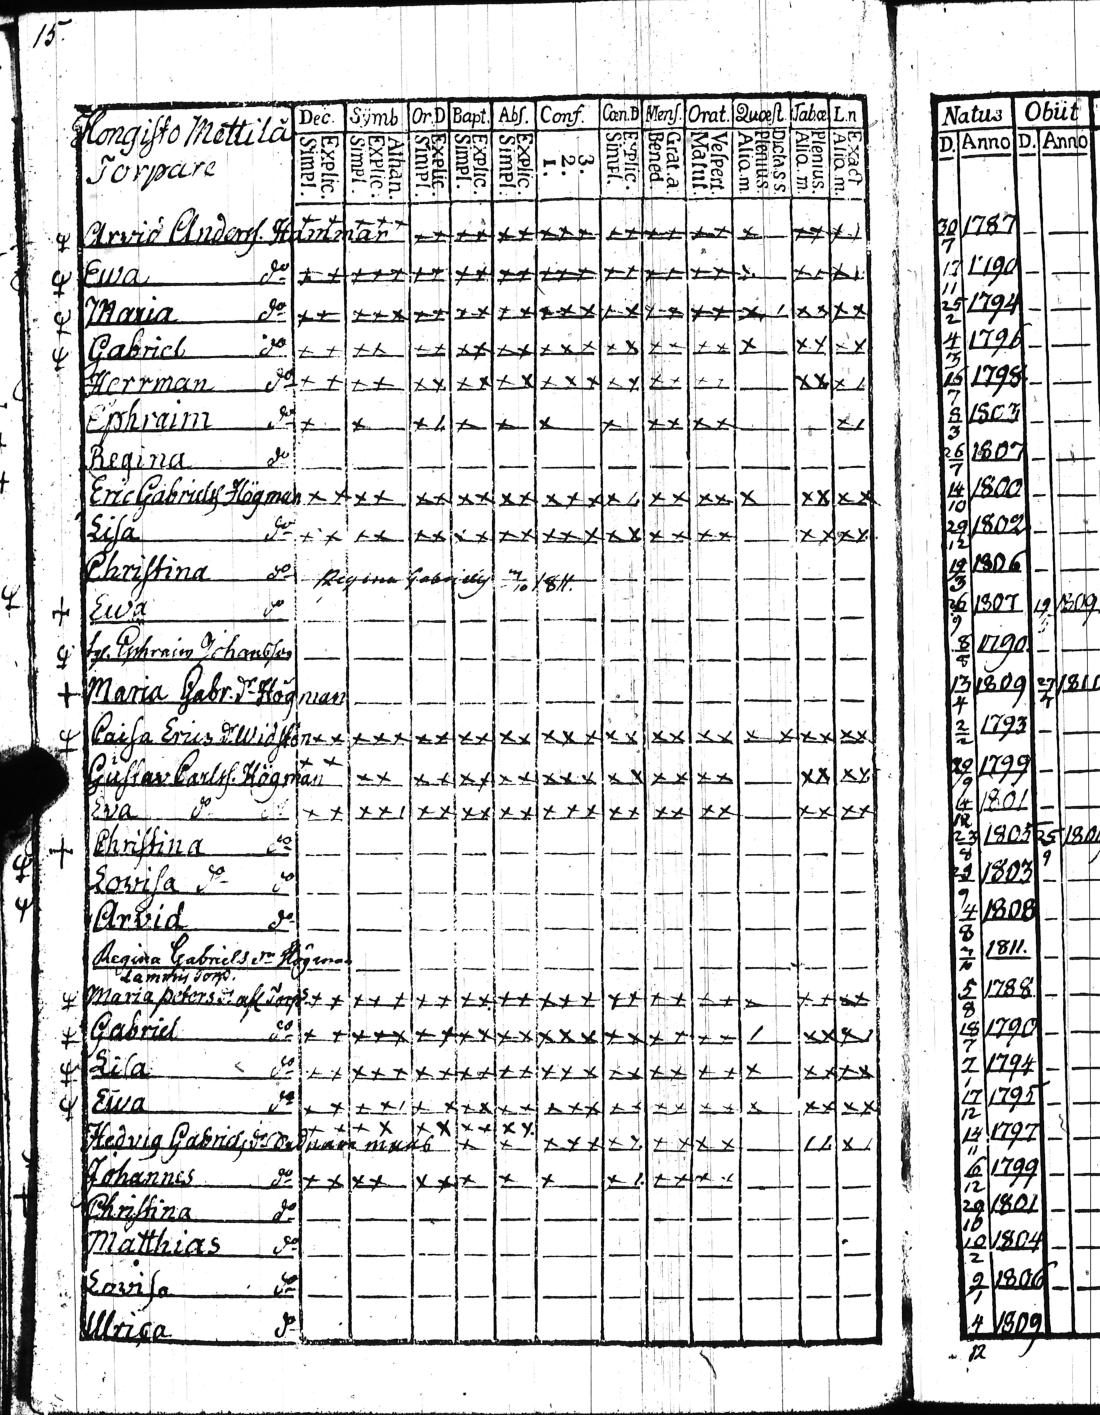 15.
Hongisto Mettilä
Torpare
Dec. Symb Or.D Bapt. Abs. Conf. Cœn.D Mens. Orat. Quæst. Tabæ L.n
Simpl. Explic. Simpl. Explic. Athan. Simpl. Explic. Simpl. Explic. Simpl. Explic. 1. 2. 3. Simpl. Explic. Bened. Grat.a Matut. Vespert. Aliq.m. Plenius. Dicta s.s. Aliq.m. Plenius. Aliq.m. Exact
Natus Obiit
D. Anno D. Anno
Arvid Anderss. Hammar 30/7 1787
Ewa do 17/11 1790
Maria do 25/2 1794
Gabriel do 4/3 1796
Herrman do 15/7 1798
Ephraim do 8/3 1803
Regina do 26/7 1807
Eric Gabrielss Högman 14/10 1800
Lisa do 29/12 1802
Christina do 19/3 1806
Regina Gabriels 7/10 1811.
Ewa do 26/9 1807 19/5 1809
Ephraim Johansson 8/8 1790
Maria Gabr. dr Högman 13/4 1809 27/4 1810
Caisa Erics dr 2/2 1793
Gustav Carlss. Högman 1799
Eva do 4/12 1801
Christina do 23/8 1805 25/9
Lovisa do do 1803
Arvid do 4/8 1808
Regina Gabriels dr Högman 7/10 1811.
Maria Peters 5/8 1788
Gabriel do 18/7 1790
Lisa do 2/1 1794
Ewa do 17/12 1795
Hedvig Gabriels dr 14/11 1797
Johannes do 6/12 1799
Christina do 20/10 1801
Matthias do 10/2 1804
Lovisa do 2/1 1806
Ulrica do 4/12 1809